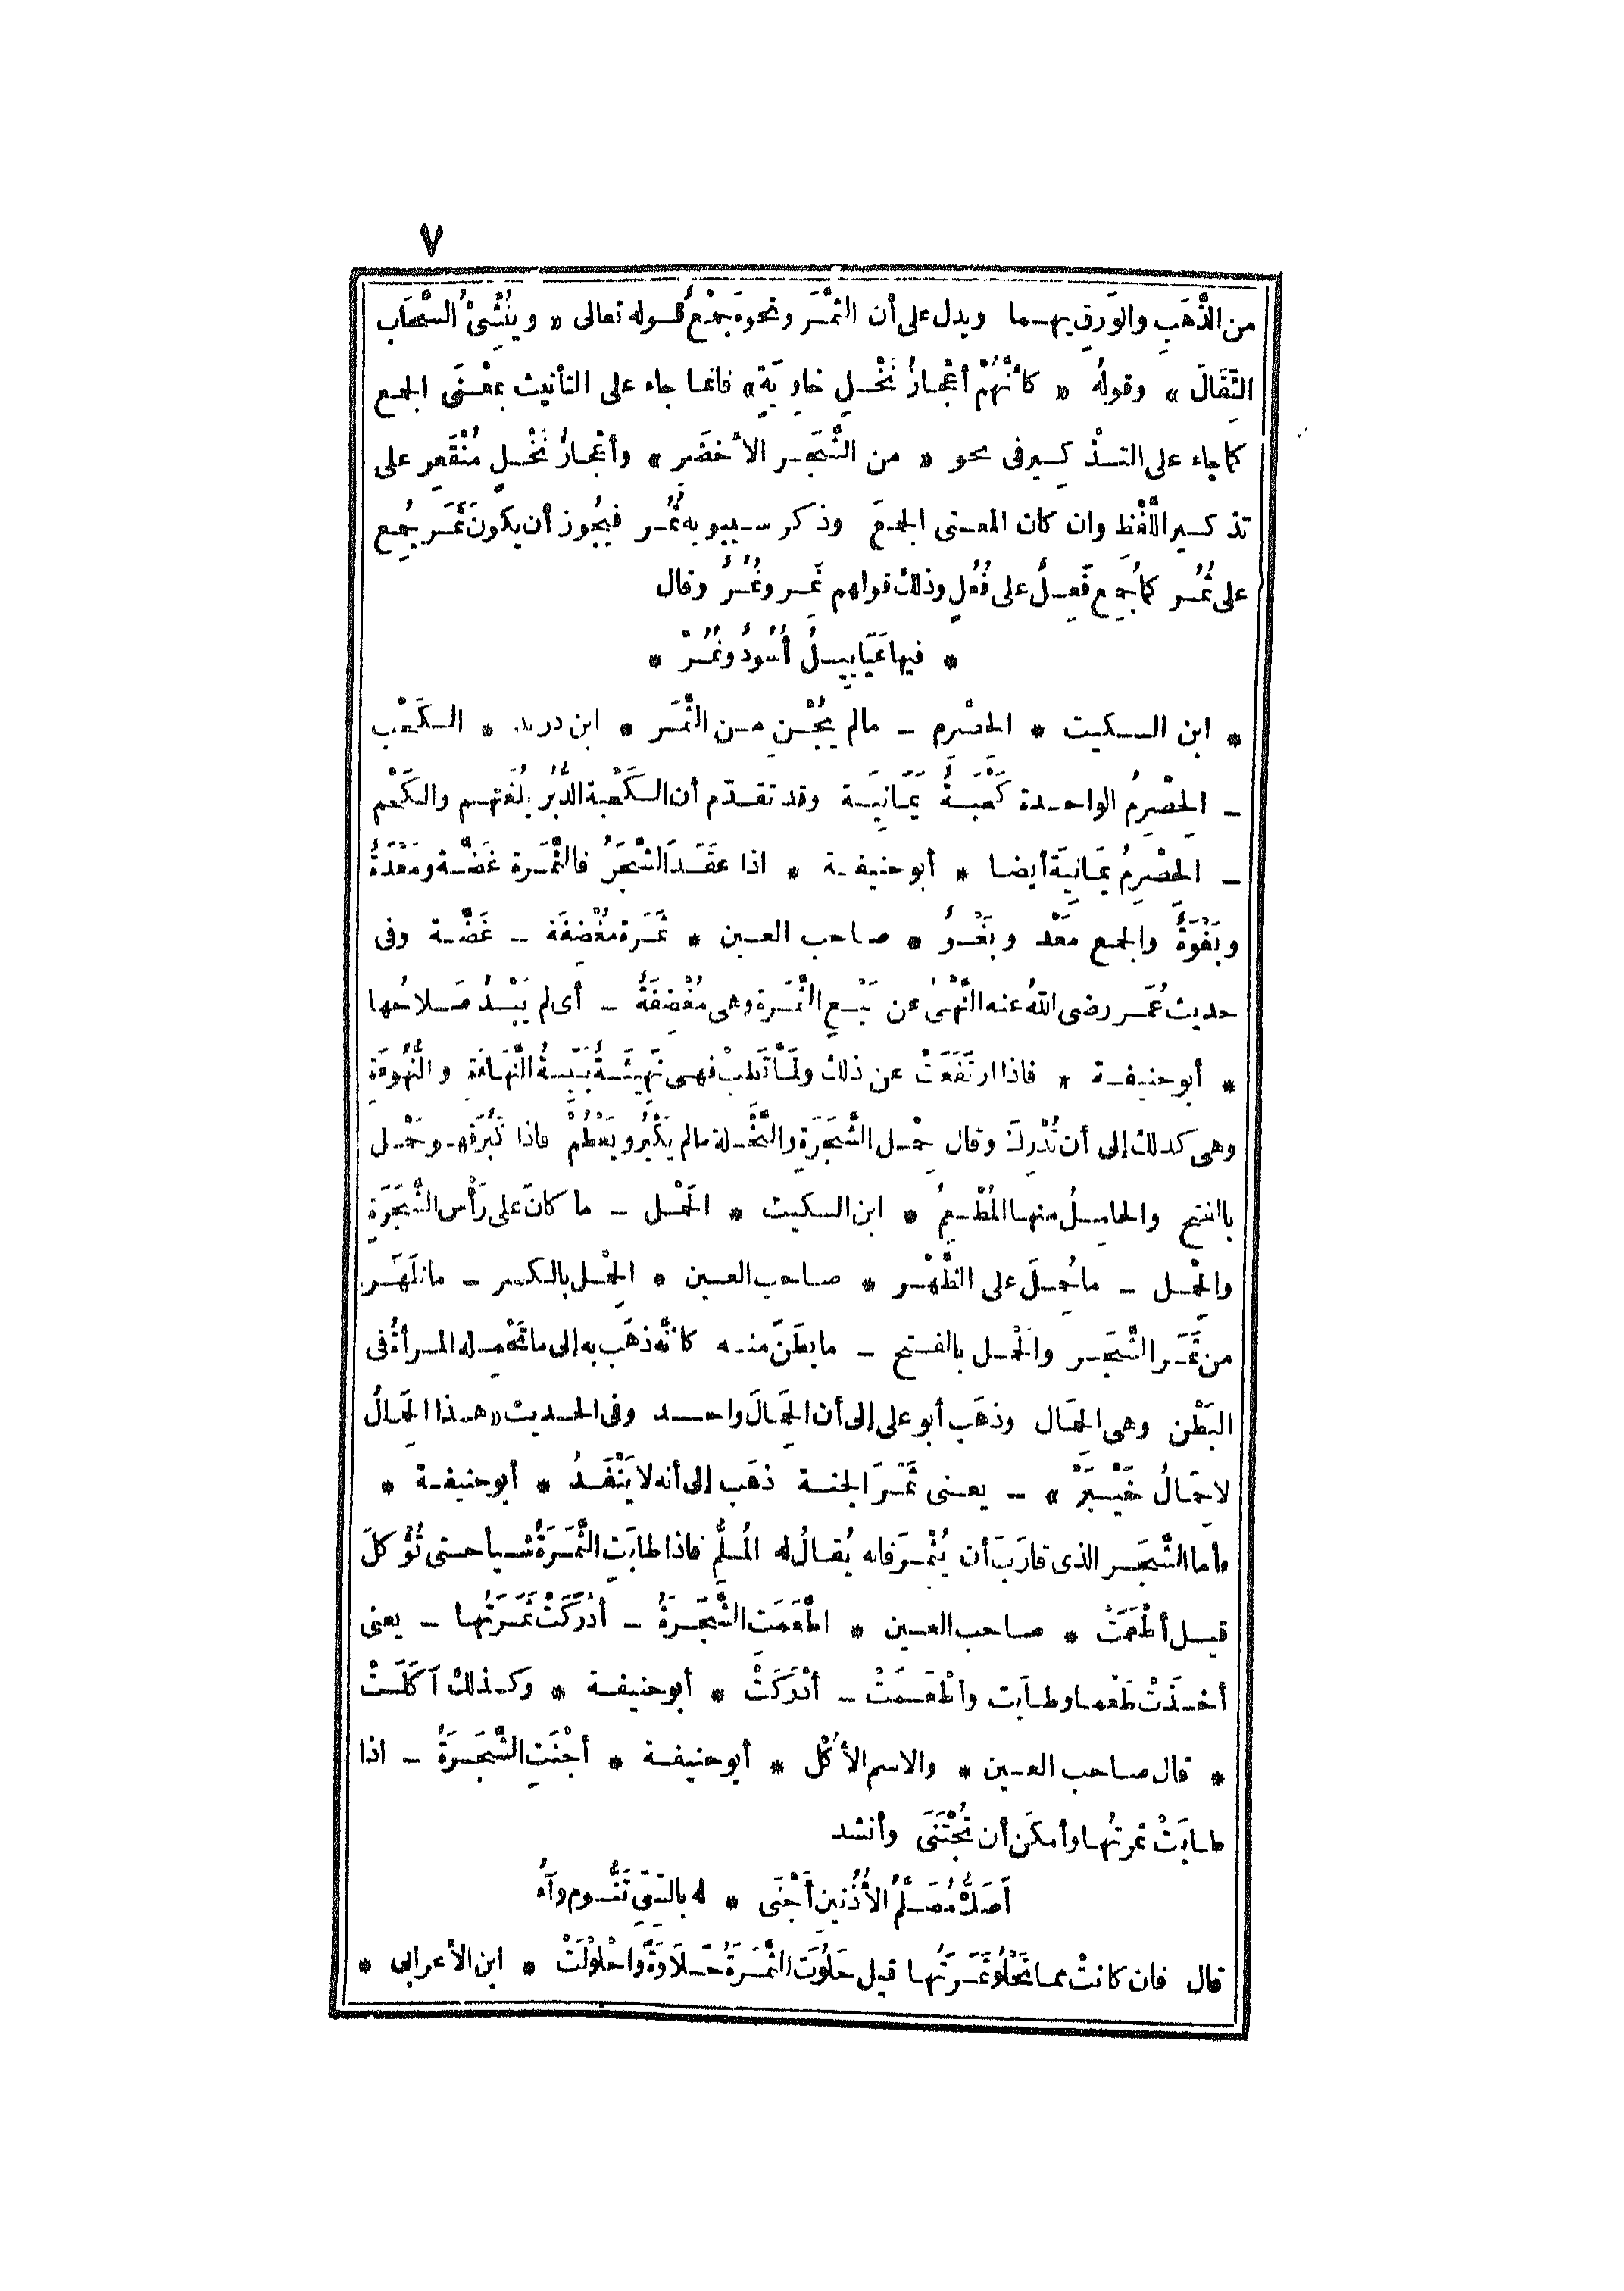 ٧
من الذَّهَبِ والوَرِق بهـما ويدل على أن الثَّمَـرَ ونحوه جَمْعٌ قـوله تعالى « ويُنْشِئُ السَّحَاب
الثِّقَالَ » وقولُه « كأنَّهُمْ أَعْجازُ نَخْـلٍ خاوِيَةٍ » فانما جاء على التأنيث بمعْـنَى الجمع
كما جاء على التـذْكِـير فى نحو « من الشَّجَـر الأَخضَرِ » وأعْجـازُ نَخْـلٍ مُنْقَعِرٍ على
تذكـير اللَّفْظِ وان كان المعـنى الجمعَ وذكر سـيبويه ثُمُـر فيَجُوز أن يكونَ ثَمَـر يُجْمع
على ثُمُـر كما جُمِع فَعِـلٌ على فُعُلٍ وذلك قولهم نَمِـر ونُمُـرٌ وقال
* فيها عَيَايِيـلُ أُسُودٌ ونُمُـرْ *
* ابن السـكيت * الحصْرِم ــ مالم يَجْـنِ مـن الثَّمَـر * ابن دريد * الـكَحْب
ــ الحِصْرِمُ الواحـدة كَحْبَـةٌ يَمَانِيَـة وقد تقـدّم أن الـكَحْبـة الدُّبُر بلُغَتِهـم والكَحْم
ــ الحِصْرِمُ يَمَانِيَة أيضـا * أبو حنيفـة * اذا عقَـدَ الشَّجَرُ فالثَّمَـرة غَضَّـة ومَعْدَةٌ
وبَغْوَةٌ والجمع مَعْد وبَغْـوٌ * صـاحب العـين * ثَمَـرة مُغْضِفَة ــ غَضَّـة وفى
حديث عُمَـر رضى اللهُ عنه النَّهْىُ عن بَيْـعِ الثَّمَـرة وهى مُغْضِفَةٌ ــ أى لم يَبْـدُ صَـلاحُها
* أبو حنيفـة * فاذا ارتَفَعَتْ عن ذلك ولَمَّا تَطِبْ فهـى نَهِيئَـةٌ بَيِّنـةُ النَّهَاءَةِ والنُّهُوءَةِ
وهى كذلك إلى أن تُدْرِكَ وقال حِمْـل الشَّجَرَةِ والنَّخْـلة مالم يَكْبُر ويَعْظُمْ فاذا كَبُرَ فهـو حَمْـل
بالفتح والحامِـلُ منهـا المُطْـعِمُ * ابن السكيت * الحَمْـل ــ ما كانَ على رَأْس الشَّجَرَةِ
والحِمْـل ــ ما حُمِـلَ على الظَّهْـر * صـاحب العـين * الحِمْـل بالكسـر ــ ما ظَهَـر
من ثَمَـر الشَّجَـر والحَمْـل بالفـتح ــ ما بطَنَ منـه كانَّه ذهَب به إلى ما تَحْمِـله المـرأةُ فى
البَطْن وهى الحمَـال وذهَب أبو على إلى أن الحِمَـالَ واحـد وفى الحـديث « هـذا الحِمَالُ
لا حِمَـالُ خَيْـبَرْ » ــ يعـنى ثَمَـرَ الجنـة ذهَب إلى أنه لا يَنْفَـدُ * أبو حنيفـة *
وأما الشَّجَـر الذى قارَبَ أن يُثْمِـرَ فانه يُقـالُ له المُـلِمُّ فاذا طابَتِ الثَّمَـرَةُ شـيأ حـتى تُؤْكلَ
قيـل أَطْعَمَتْ * صـاحب العـين * اطَّعَمَت الشَّجَـرَةُ ــ أدْرَكَتْ ثَمَـرَتُهـا ــ يعنى
أخـذَتْ طَعْمـا وطـابَت وأَطْعَـمَتْ ــ أدْرَكَتْ * أبو حنيفـة * وكـذلك آكَلَـتْ
* قال صـاحب العـين * والاسم الأُكْل * أبو حنيفـة * أجْنَتِ الشَّجَـرَةُ ــ اذا
طـابَتْ ثمرتُهـا وأمكَن أن تُجْتَنَى وأنشد
أَصَكَّ مُصَـلَّمُ الأُذُنَيْنِ أَجْنَى * له بالسِّىِّ تَنُّـوم وآءُ
قال فان كانتْ مما تَحْلُو ثَمَـرَتُهـا قيـل حَلُوَت الثَّمَـرَةُ حَـلَاوَةً واحْلَوْلَتْ * ابن الأعرابى *